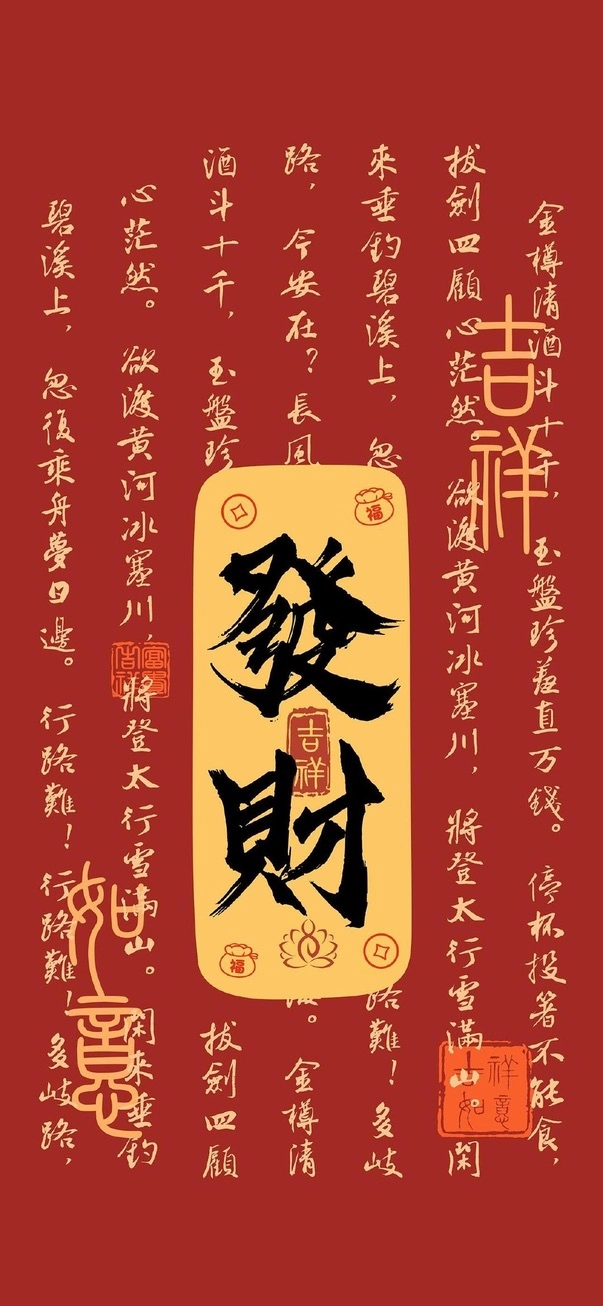 金樽清酒斗十千，玉盤珍羞直万錢。停杯投箸不能食，
拔劍四顧心茫然。欲渡黄河冰塞川，將登太行雪滿山。閑
來垂釣碧溪上，忽
路難！多岐
路，今安在？長風
。金樽清
酒斗十千，玉盤珍
拔劍四顧
心茫然。欲渡黄河冰塞川，將登太行雪滿山。閑來垂釣
碧溪上，忽復乘舟夢日邊。行路難！行路難！多岐路，
吉祥
如意
發財
吉祥
福
福
吉祥如意
富貴吉祥